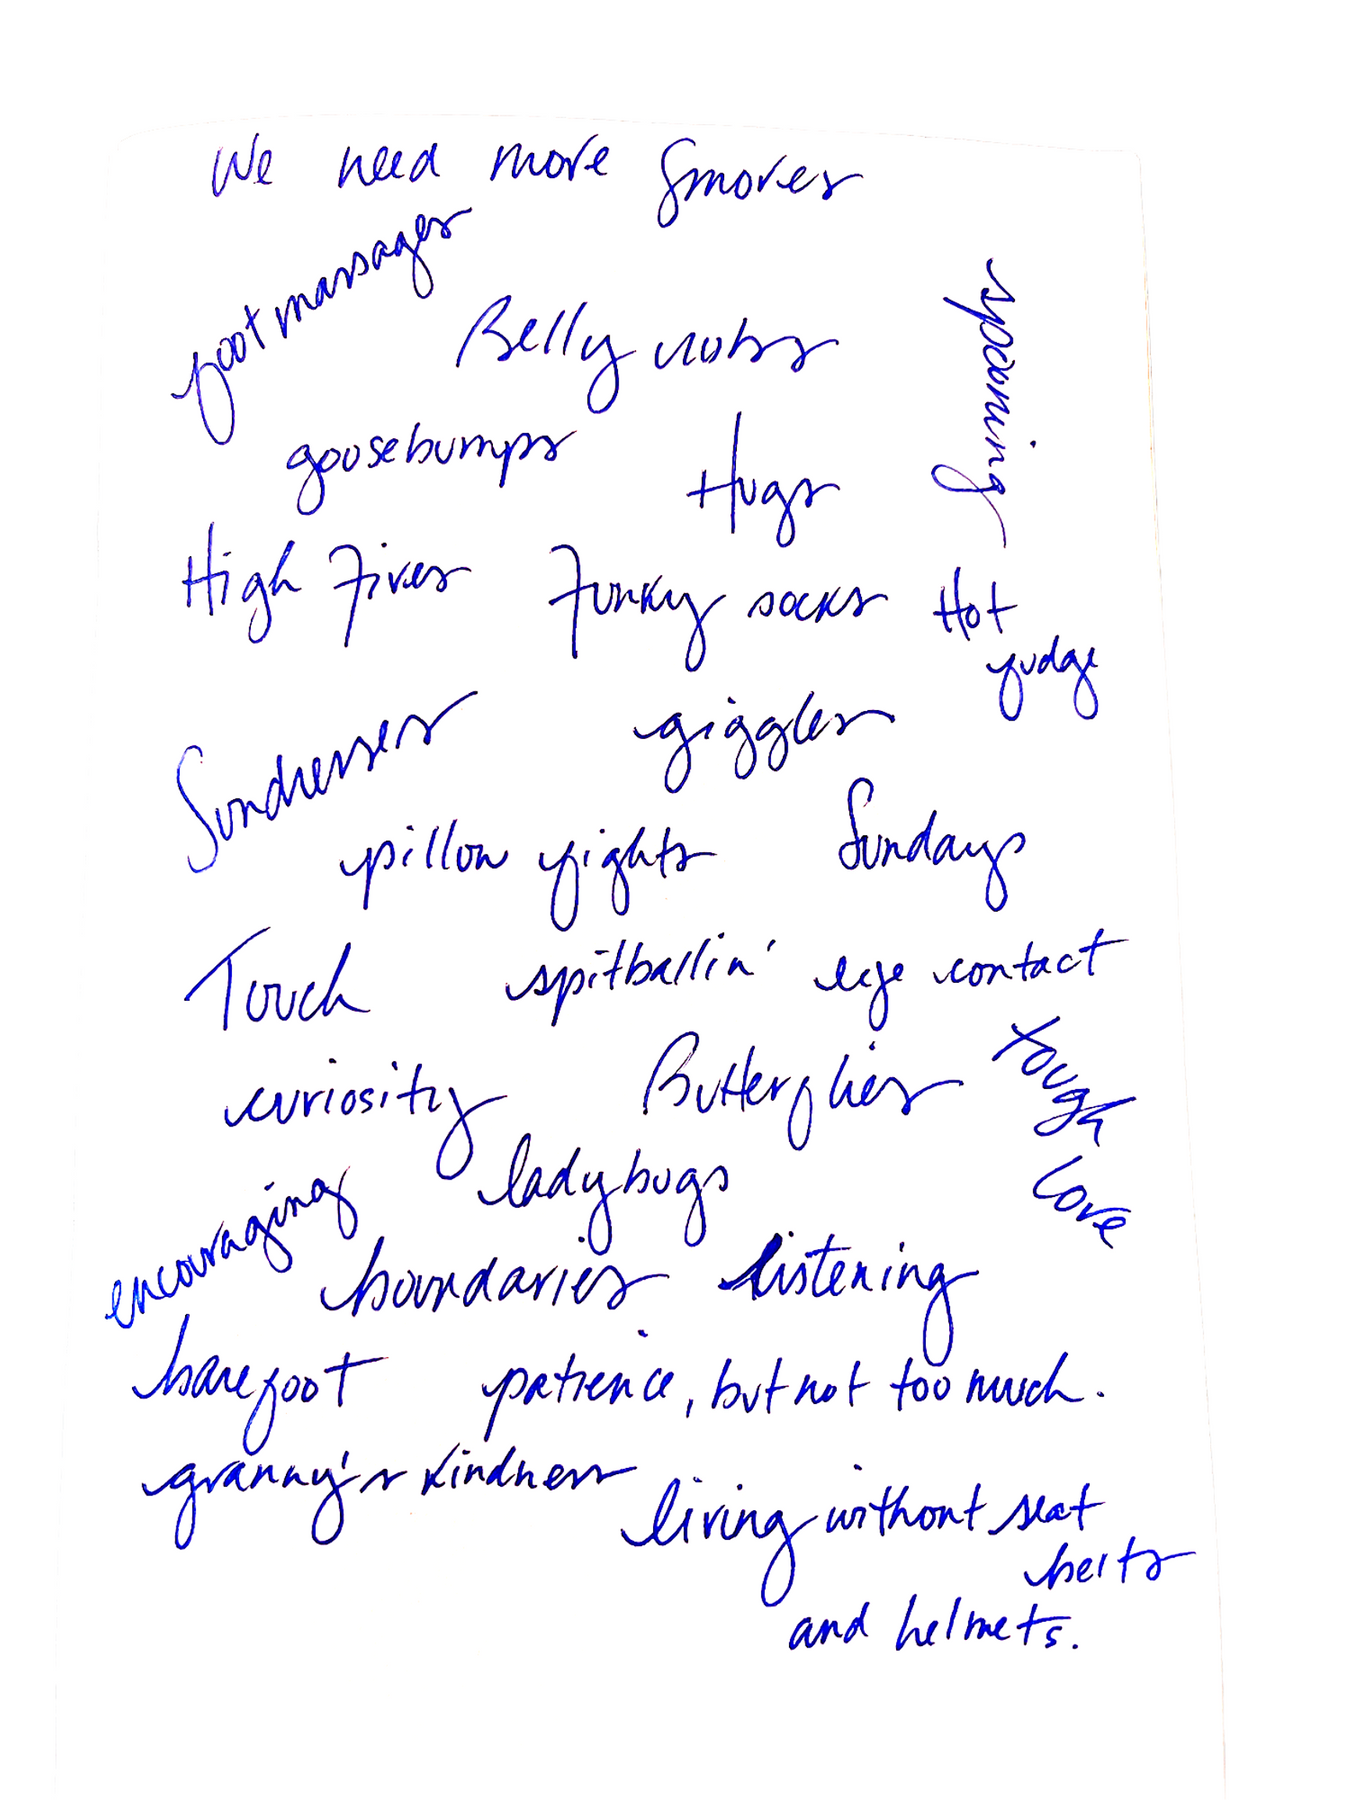 We need more Smores
foot massages
Belly rubs
spooning
goosebumps
Hugs
High Fives
Funky socks
Hot
fudge
Sundresses
giggles
pillow fights
Sundays
Touch
spitballin'
eye contact
curiosity
Butterflies
tough
love
encouraging
ladybugs
boundaries
listening
barefoot
patience, but not too much.
granny's kindness
living without seat
belts
and helmets.